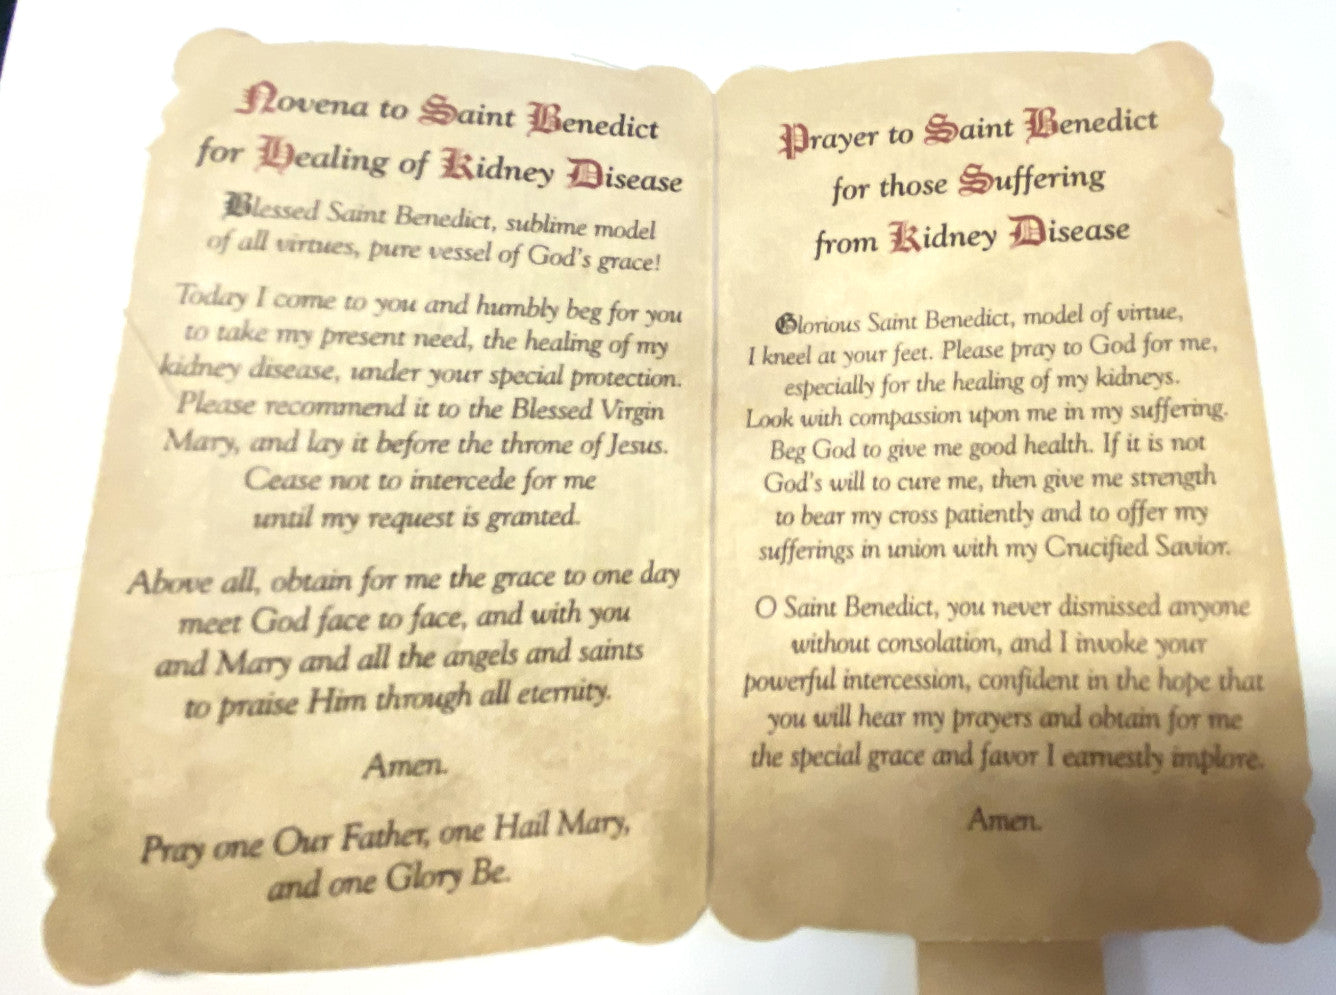 Novena to Saint Benedict
for Healing of Kidney Disease
Blessed Saint Benedict, sublime model
of all virtues, pure vessel of God's grace!
Today I come to you and humbly beg for you
to take my present need, the healing of my
kidney disease, under your special protection.
Please recommend it to the Blessed Virgin
Mary, and lay it before the throne of Jesus.
Cease not to intercede for me
until my request is granted.
Above all, obtain for me the grace to one day
meet God face to face, and with you
and Mary and all the angels and saints
to praise Him through all eternity.
Amen.
Pray one Our Father, one Hail Mary,
and one Glory Be.
Prayer to Saint Benedict
for those Suffering
from Kidney Disease
Glorious Saint Benedict, model of virtue,
I kneel at your feet. Please pray to God for me,
especially for the healing of my kidneys.
Look with compassion upon me in my suffering.
Beg God to give me good health. If it is not
God's will to cure me, then give me strength
to bear my cross patiently and to offer my
sufferings in union with my Crucified Savior.
O Saint Benedict, you never dismissed anyone
without consolation, and I invoke your
powerful intercession, confident in the hope that
you will hear my prayers and obtain for me
the special grace and favor I earnestly implore.
Amen.